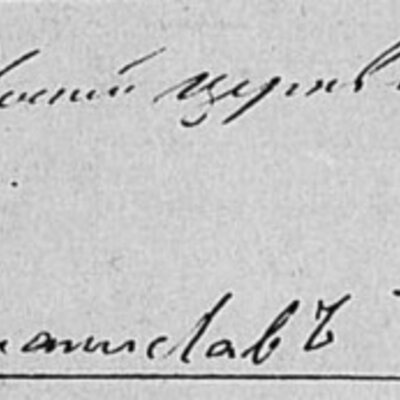 вской церкв
таниславъ